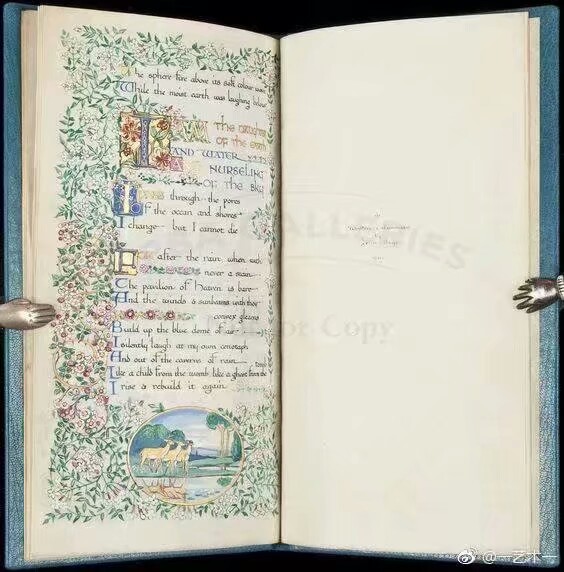 The sphere-fire above its soft colours wove
While the moist earth was laughing below
I AM the daughter
of the earth
AND WATER
AND NURSELING
of the sky
I pass through the pores
Of the ocean and shores
I change but I cannot die
For after the rain when with
never a stain
The pavilion of Heaven is bare
And the winds & sunbeams with their
convex gleams
Build up the blue dome of air
I silently laugh at my own cenotaph
And out of the caverns of rain
Like a child from the womb, like a ghost from the tomb
I rise & rebuild it again
GALLERIES
or Copy
@一艺术一